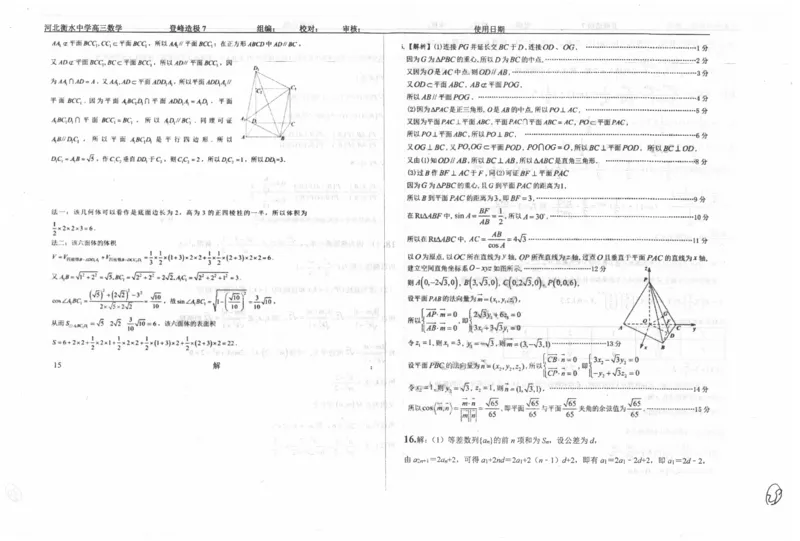 河北衡水中学高三数学 登峰造极 7 组编: 校对: 审核: 使用日期
AA₁⊄平面BCC₁,CC₁⊂平面BCC₁,所以AA₁//平面BCC₁,在正方形ABCD中AD//BC,
又AD⊄平面BCC₁,BC⊂平面BCC₁,所以AD//平面BCC₁,因
为AA₁∩AD=A,又AA₁,AD⊂平面ADD₁A₁,所以平面ADD₁A₁//
平面BCC₁,因为平面A₁BC₁D₁∩平面ADD₁A₁=A₁D₁,平面
A₁BC₁D₁∩平面BCC₁=BC₁,所以A₁D₁//BC₁,同理可证
A₁B//D₁C₁,所以平面A₁BC₁D₁是平行四边形,所以
D₁C₁=A₁B=√5,作C₁C₂垂直DD₁于C₂,则C₁C₂=2,所以D₁C₂=1,所以DD₁=3.
法一:该几何体可以看作是底面边长为2,高为3的正四棱柱的一半,所以体积为
1/2×2×2×3=6.
法二:该六面体的体积
又A₁B=√1²+2²=√5,BC₁=√2²+2²=2√2,A₁C₁=√2²+2²+1²=3.
cos∠A₁BC₁=((√5)²+(2√2)²-3²)/(2×√5×2√2)=√10/10,故sin∠A₁BC₁=√1-(√10/10)²=3/10√10,
从而 √5 2√2 3/10 √10=6,该六面体的表面积
S=6+2×2+1/2×2×1+1/2×2×2+1/2×(1+3)×2+1/2×(2+3)×2=22.
15 解
1.【解析】(1)连接PG并延长交BC于D,连接OD、OG, 1分
因为G为△PBC的重心,所以D为BC的中点, 2分
又因为O是AC中点,则OD//AB, 3分
又OD⊂平面ABC,AB⊄平面POG,
所以AB//平面POG, 4分
(2)因为△PAC是正三角形,O是AB的中点,所以PO⊥AC, 5分
又因为平面PAC⊥平面ABC,平面PAC∩平面ABC=AC,PO⊂平面PAC,
所以PO⊥平面ABC,所以PO⊥BC, 6分
又OG⊥BC,又PO,OG⊂平面POD,PO∩OG=O,所以BC⊥平面POD,所以BC⊥OD,
又由(1)知OD//AB,所以BC⊥AB,所以△ABC是直角三角形. 8分
(3)过B作BF⊥AC于F,同(2)可证BF⊥平面PAC
因为G为△PBC的重心,且G到平面PAC的距离为1,
所以B到平面PAC的距离为3,即BF=3, 9分
在Rt△ABF中,sinA=BF/AB=1/2,所以A=30°. 10分
所以在Rt△ABC中,AC=AB/cosA=4√3 11分
以O为原点,以OC所在直线为y轴,OP所在直线为z轴,过点O且垂直于平面PAC的直线为x轴,
建立空间直角坐标系O-xyz如图所示, 12分
则A(0,-2√3,0),B(3,√3,0),C(0,2√3,0),P(0,0,6),
设平面PAB的法向量为m=(x₁,y₁,z₁),
所以{AP·m=0 AB·m=0 即{2√3y₁+6z₁=0 3x₁+3√3y₁=0
令z₁=1,则x₁=3,y₁=-√3,则m=(3,-√3,1) 13分
设平面PBC的法向量为n=(x₂,y₂,z₂),所以{CB·n=0 CP·n=0,即{3x₂-√3y₂=0 -y₂+√3z₂=0
令x₂=1,则y₂=√3,z₂=1,则n=(1,√3,1), 14分
所以cos⟨m,n⟩=m·n/|m||n|=√65/65,即平面 √65/65 与平面 √65/65 夹角的余弦值为 √65/65. 15分
16.解:(1)等差数列{aₙ}的前n项和为Sₙ,设公差为d,
由a₂ₙ₊₁=2aₙ+2,可得a₁+2nd=2a₁+2(n-1)d+2,即有a₁=2a₁-2d+2,即a₁=2d-2,